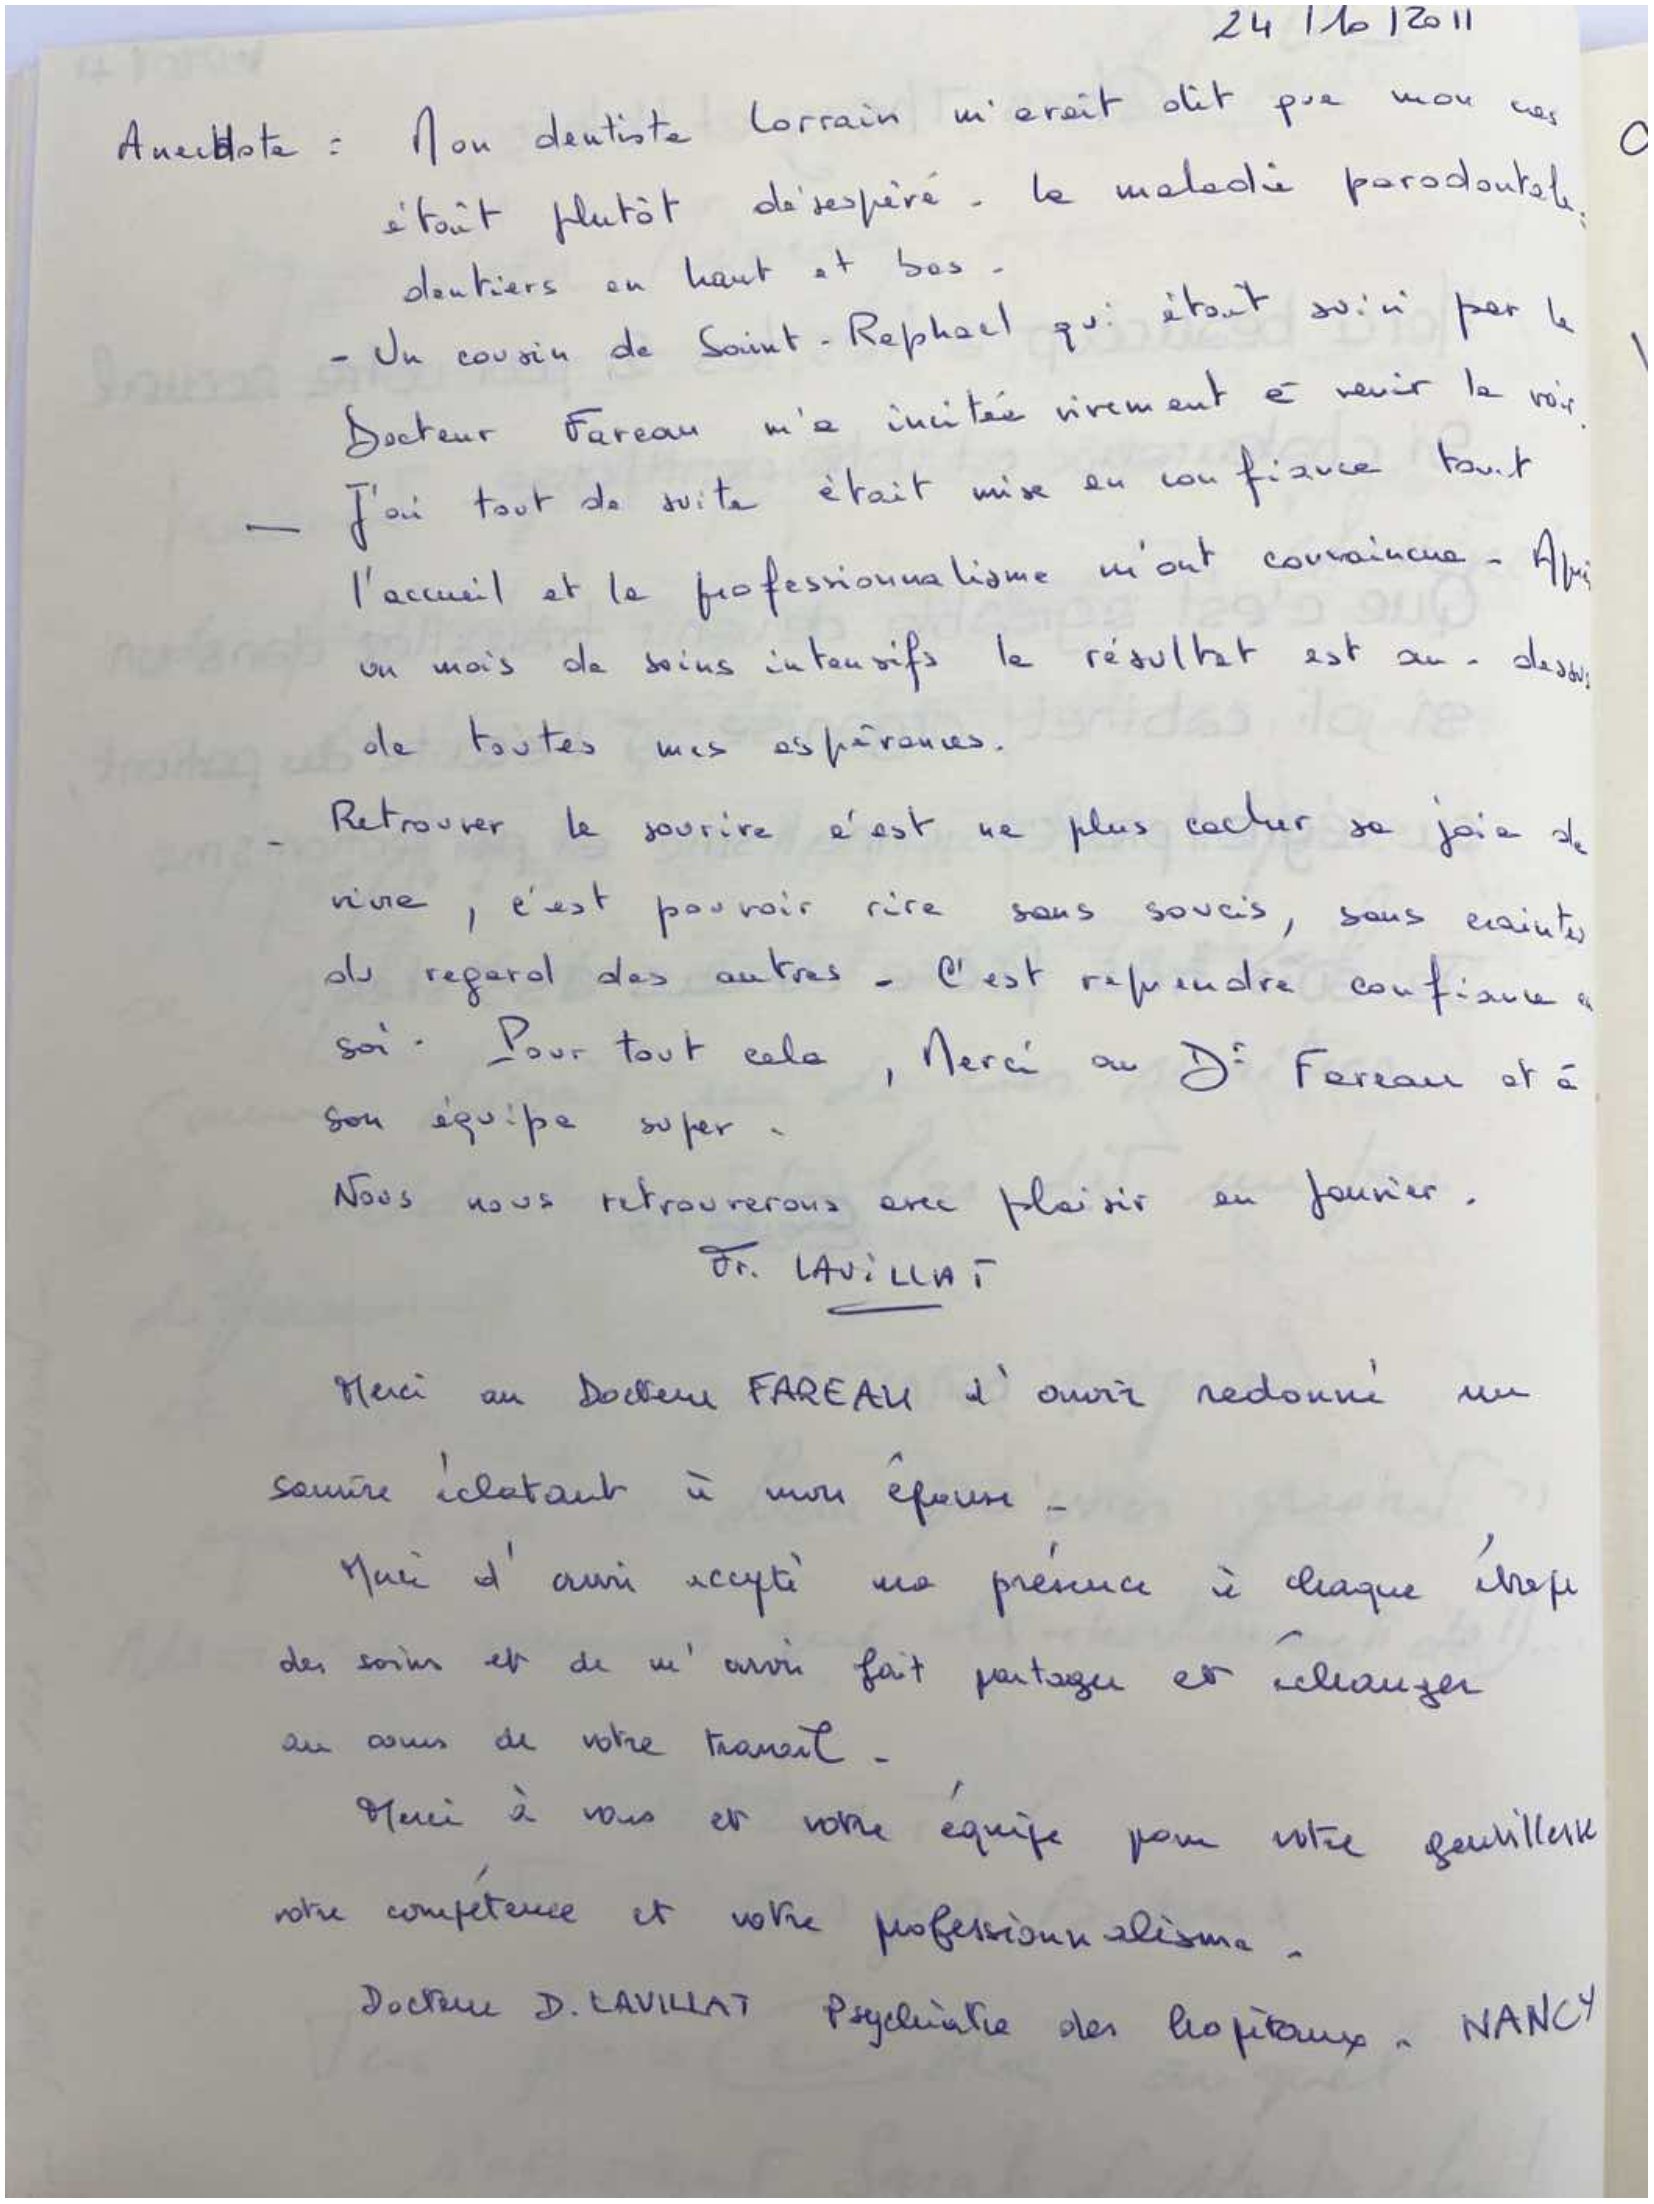 24/10/2011
Anecdote : Mon dentiste Lorrain m'avait dit que mon cas
était plutôt désespéré - la maladie parodontale :
dentiers en haut et bas -
- Un cousin de Saint-Raphael qui était suivi par le
Docteur Fareau m'a incitée vivement à venir le voir.
— J'ai tout de suite était mise en confiance tant
l'accueil et le professionnalisme m'ont convaincue - Après
un mois de soins intensifs le résultat est au-dessus
de toutes mes espérances.
- Retrouver le sourire c'est ne plus cacher sa joie de
vivre, c'est pouvoir rire sans soucis, sans craintes
du regard des autres - C'est reprendre confiance en
soi. Pour tout cela, Merci au Dr Fareau et à
son équipe super.
Nous nous retrouverons avec plaisir en Janvier.
Fr. LAVILLAT
Merci au Docteur FAREAU d'avoir redonné un
sourire éclatant à mon épouse -
Merci d'avoir accepté ma présence à chaque étape
des soins et de m'avoir fait partager et échanger
au cours de votre travail -
Merci à vous et votre équipe pour votre gentillesse
votre compétence et votre professionnalisme -
Docteur D. LAVILLAT Psychiatre des hopitaux - NANCY